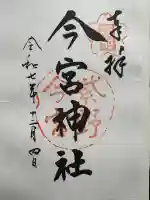 奉拝
今宮神社
令和七年十二月四日